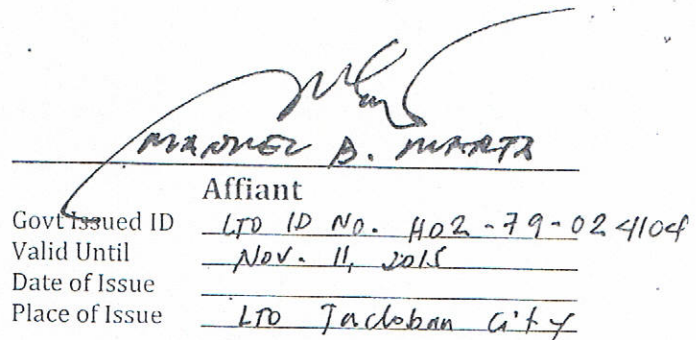 MANUEL B. MARTA
Affiant
Govt Issued ID LTO ID NO. H02-79-024104
Valid Until Nov. 11, 2015
Date of Issue
Place of Issue LTO Tacloban City